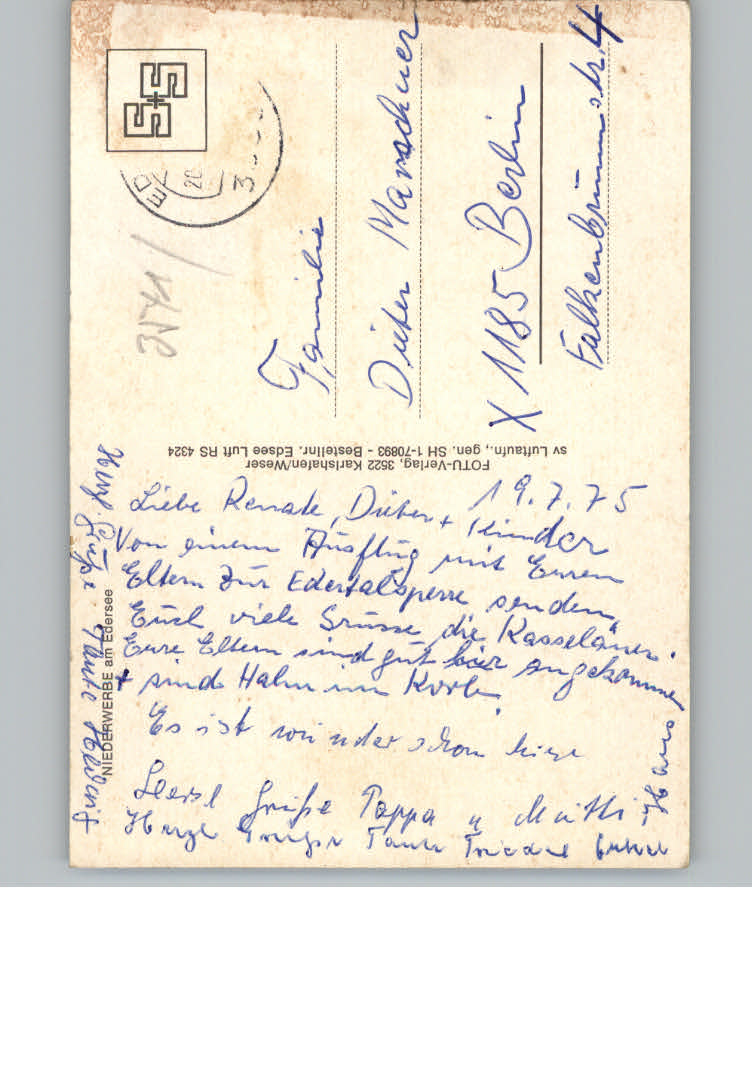 19.7.75
Liebe Renate, Dieter + Kinder
Von einem Ausflug mit Euren
Eltern zur Edertalsperre senden
Euch viele Grüsse die Kasselaner.
Eure Eltern sind gut hier angekommen
+ sind Hahn im Korb.
Es ist wunderschön hier
Grüße Pappa u Mutti
Tante
Hans
Herzl. Grüße Tante Hedwig
NIEDERWERBE am Edersee
FOTU-Verlag, 3522 Karlshafen/Weser
sv Luftaufn., gen. SH 1-70893 - Bestellnr. Edsee Luft RS 4324
Familie
Dieter Marschner
X 1185 Berlin
Falkenbrunnstr. 4
S+S
ED
20
3